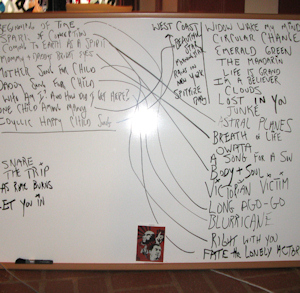 BEGINNING OF TIME
PEARL OF CONCEPTION
COMING TO EARTH AS A SPIRIT
MOMMY + DADDY
MOTHER SONG FOR CHILD
DADDY SONG FOR CHILD
WHY ME? AND HOW DID I GET HERE?
ONE CHILD AMONG MANY
IDYLLIC HAPPY CHILD SONG
SNARE
THE TRIP
AS ROME BURNS
LET YOU IN
WEST COAST
BEAUTIFUL
DAY
WIDOW WAKE MY MIND
CIRCULAR CHANGE
EMERALD GREEN
THE MANDARIN
LIFE IS GRAND
I'M A BELIEVER
CLOUDS
LOST IN YOU
JUNKE
ASTRAL PLANES
BREATH OF LIFE
OWATA
A SONG FOR A SIN
BODY + SOUL
VICTORIAN VICTIM
LONG AGO-GO
BLURRICANE
RIGHT WITH YOU
FATE THE LONELY ACTOR